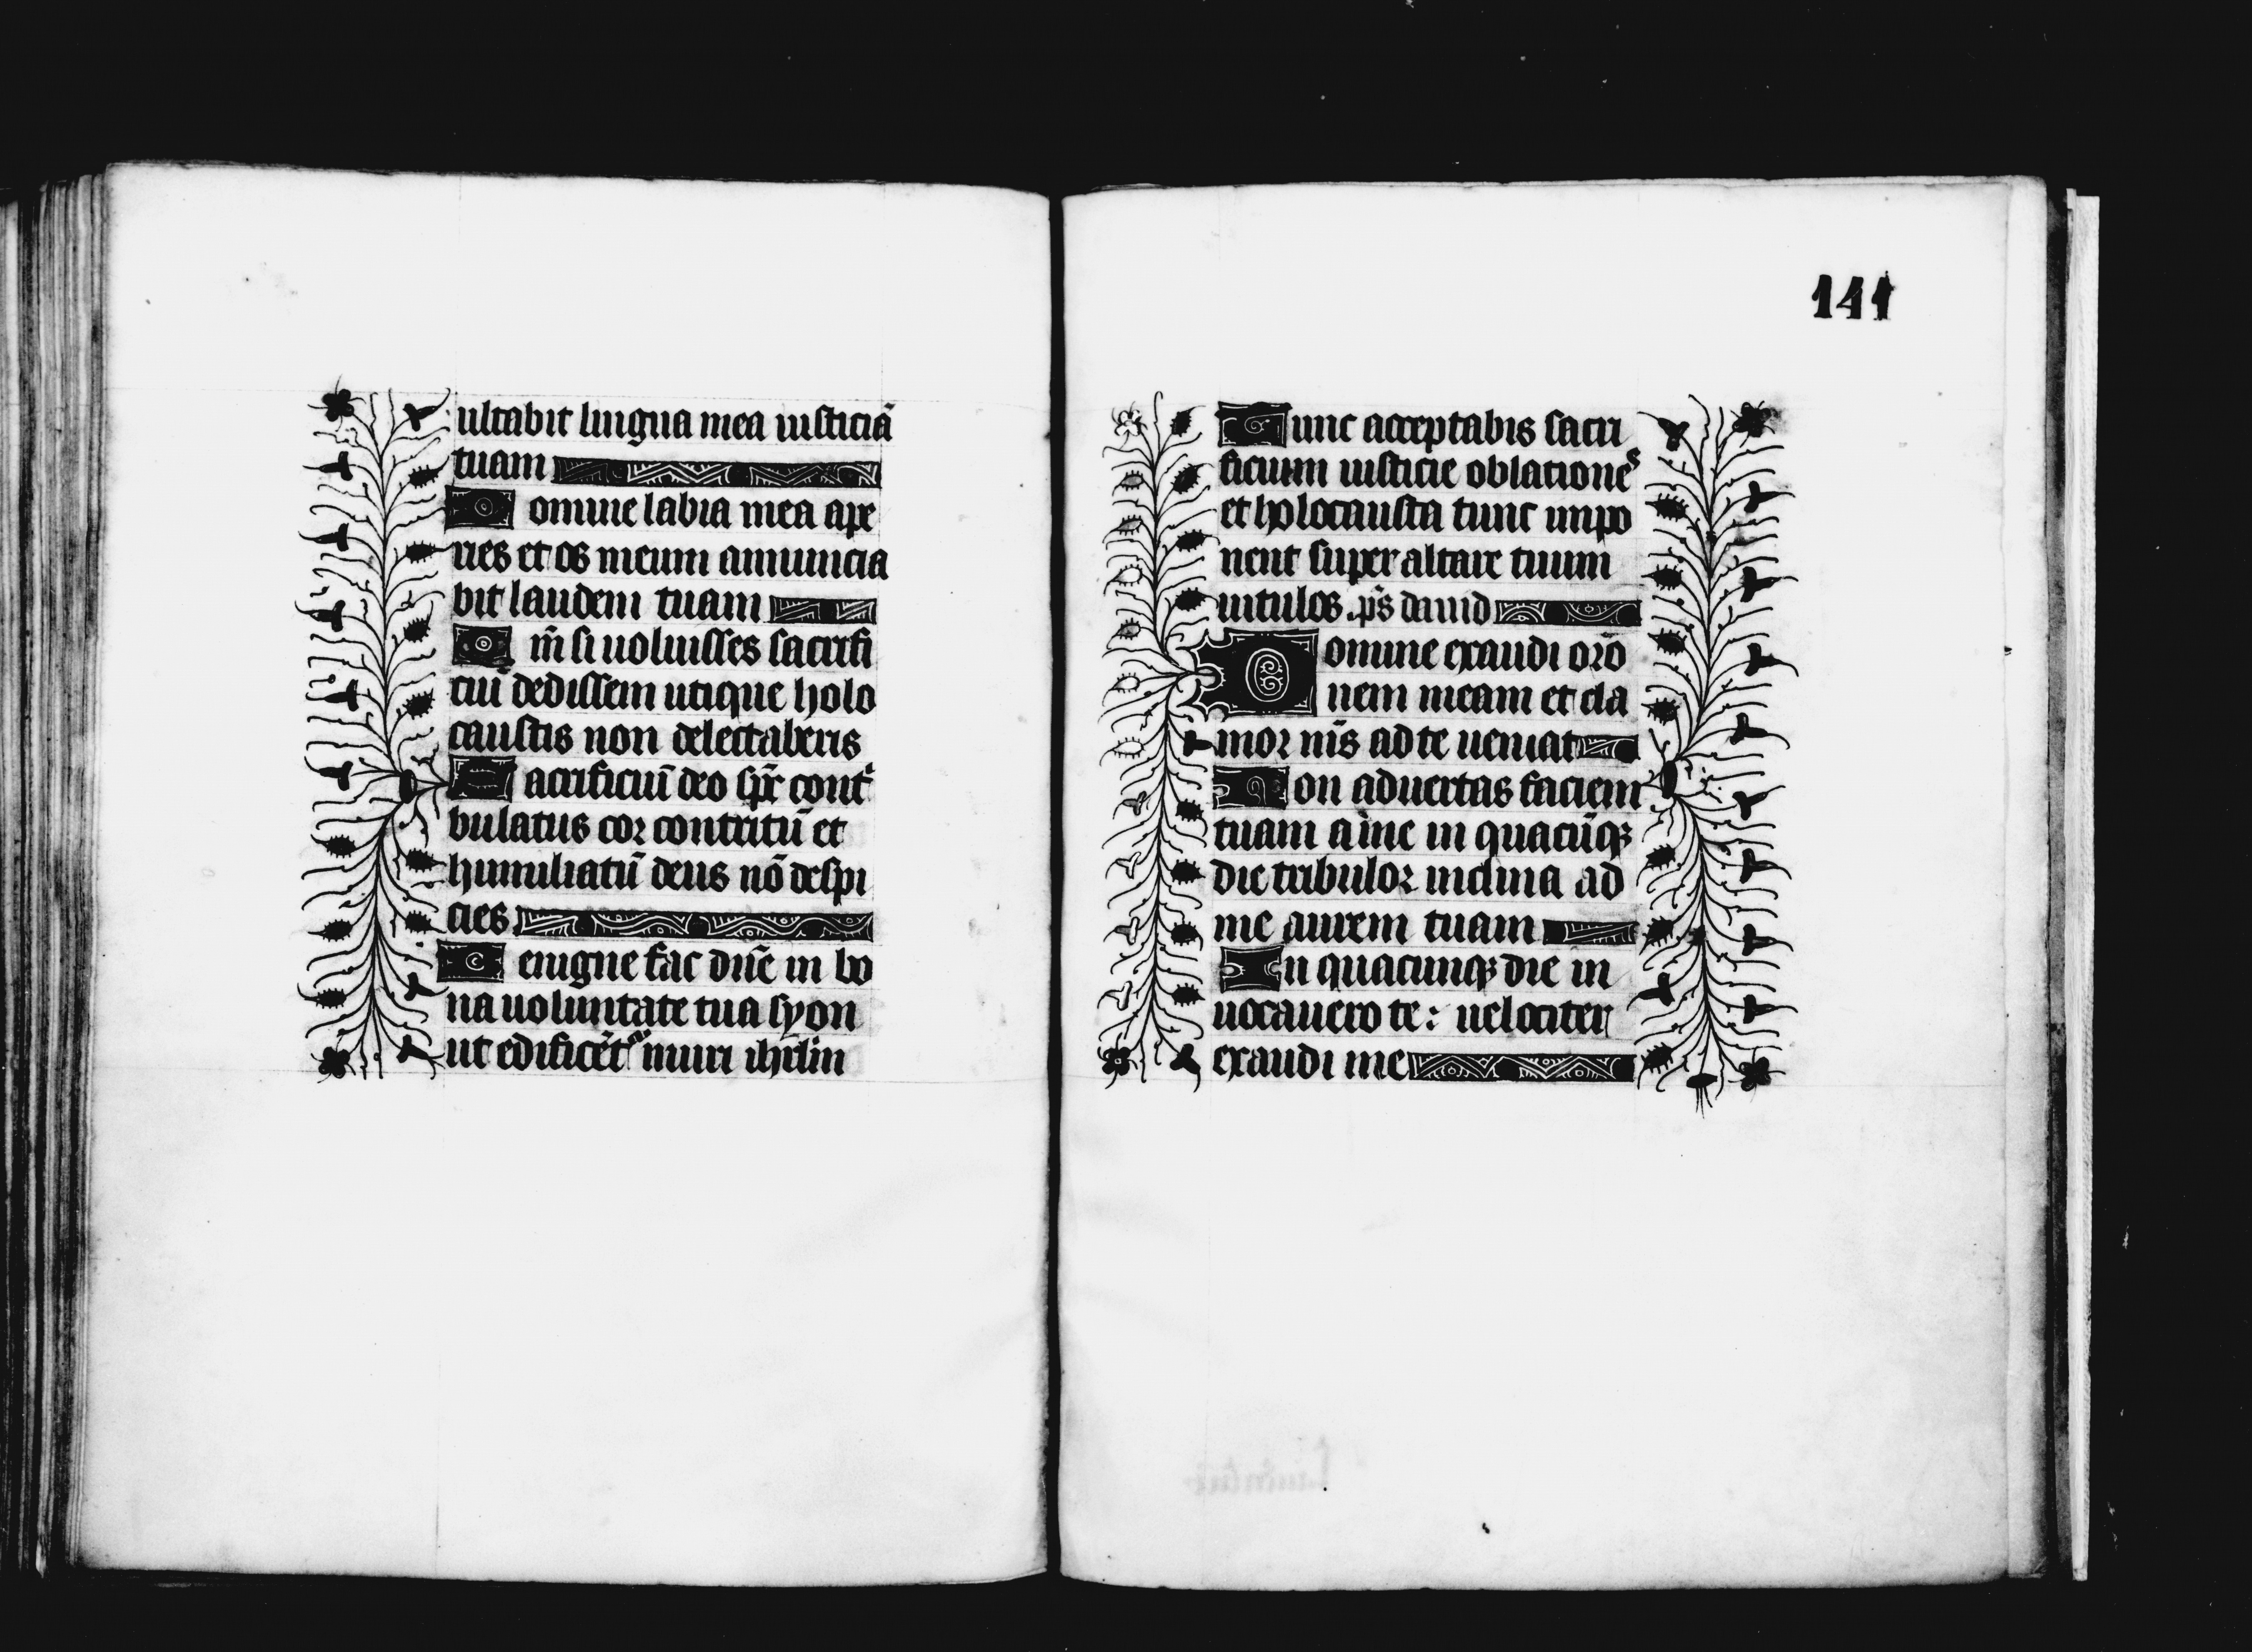 ultabit lingua mea iusticiā
tuam
Domine labia mea ape
ries et os meum annuncia
bit laudem tuam
Qm̄ si uoluisses sacrifi
ciū dedissem utique holo
caustis non delectaberis
Sacrificiū deo sp̄c contⁱ
bulatus cor contritū et
humiliatū deus nō despi
cies
Benigne fac dn̄e in bo
na uoluntate tua syon
ut edificēt᷑ muri ihrl̄m
141
Tunc acceptabis sacri
ficium iusticie oblationes
et holocausta tunc impo
nent super altare tuum
uitulos .p̄s dauid
Domine exaudi orō
nem meam et cla
mor m̄s ad te ueniat
Non aduertas faciem
tuam a me in quacūqꝫ
die tribulor inclina ad
me aurem tuam
In quacunqꝫ die in
uocauero te : uelociter
exaudi me